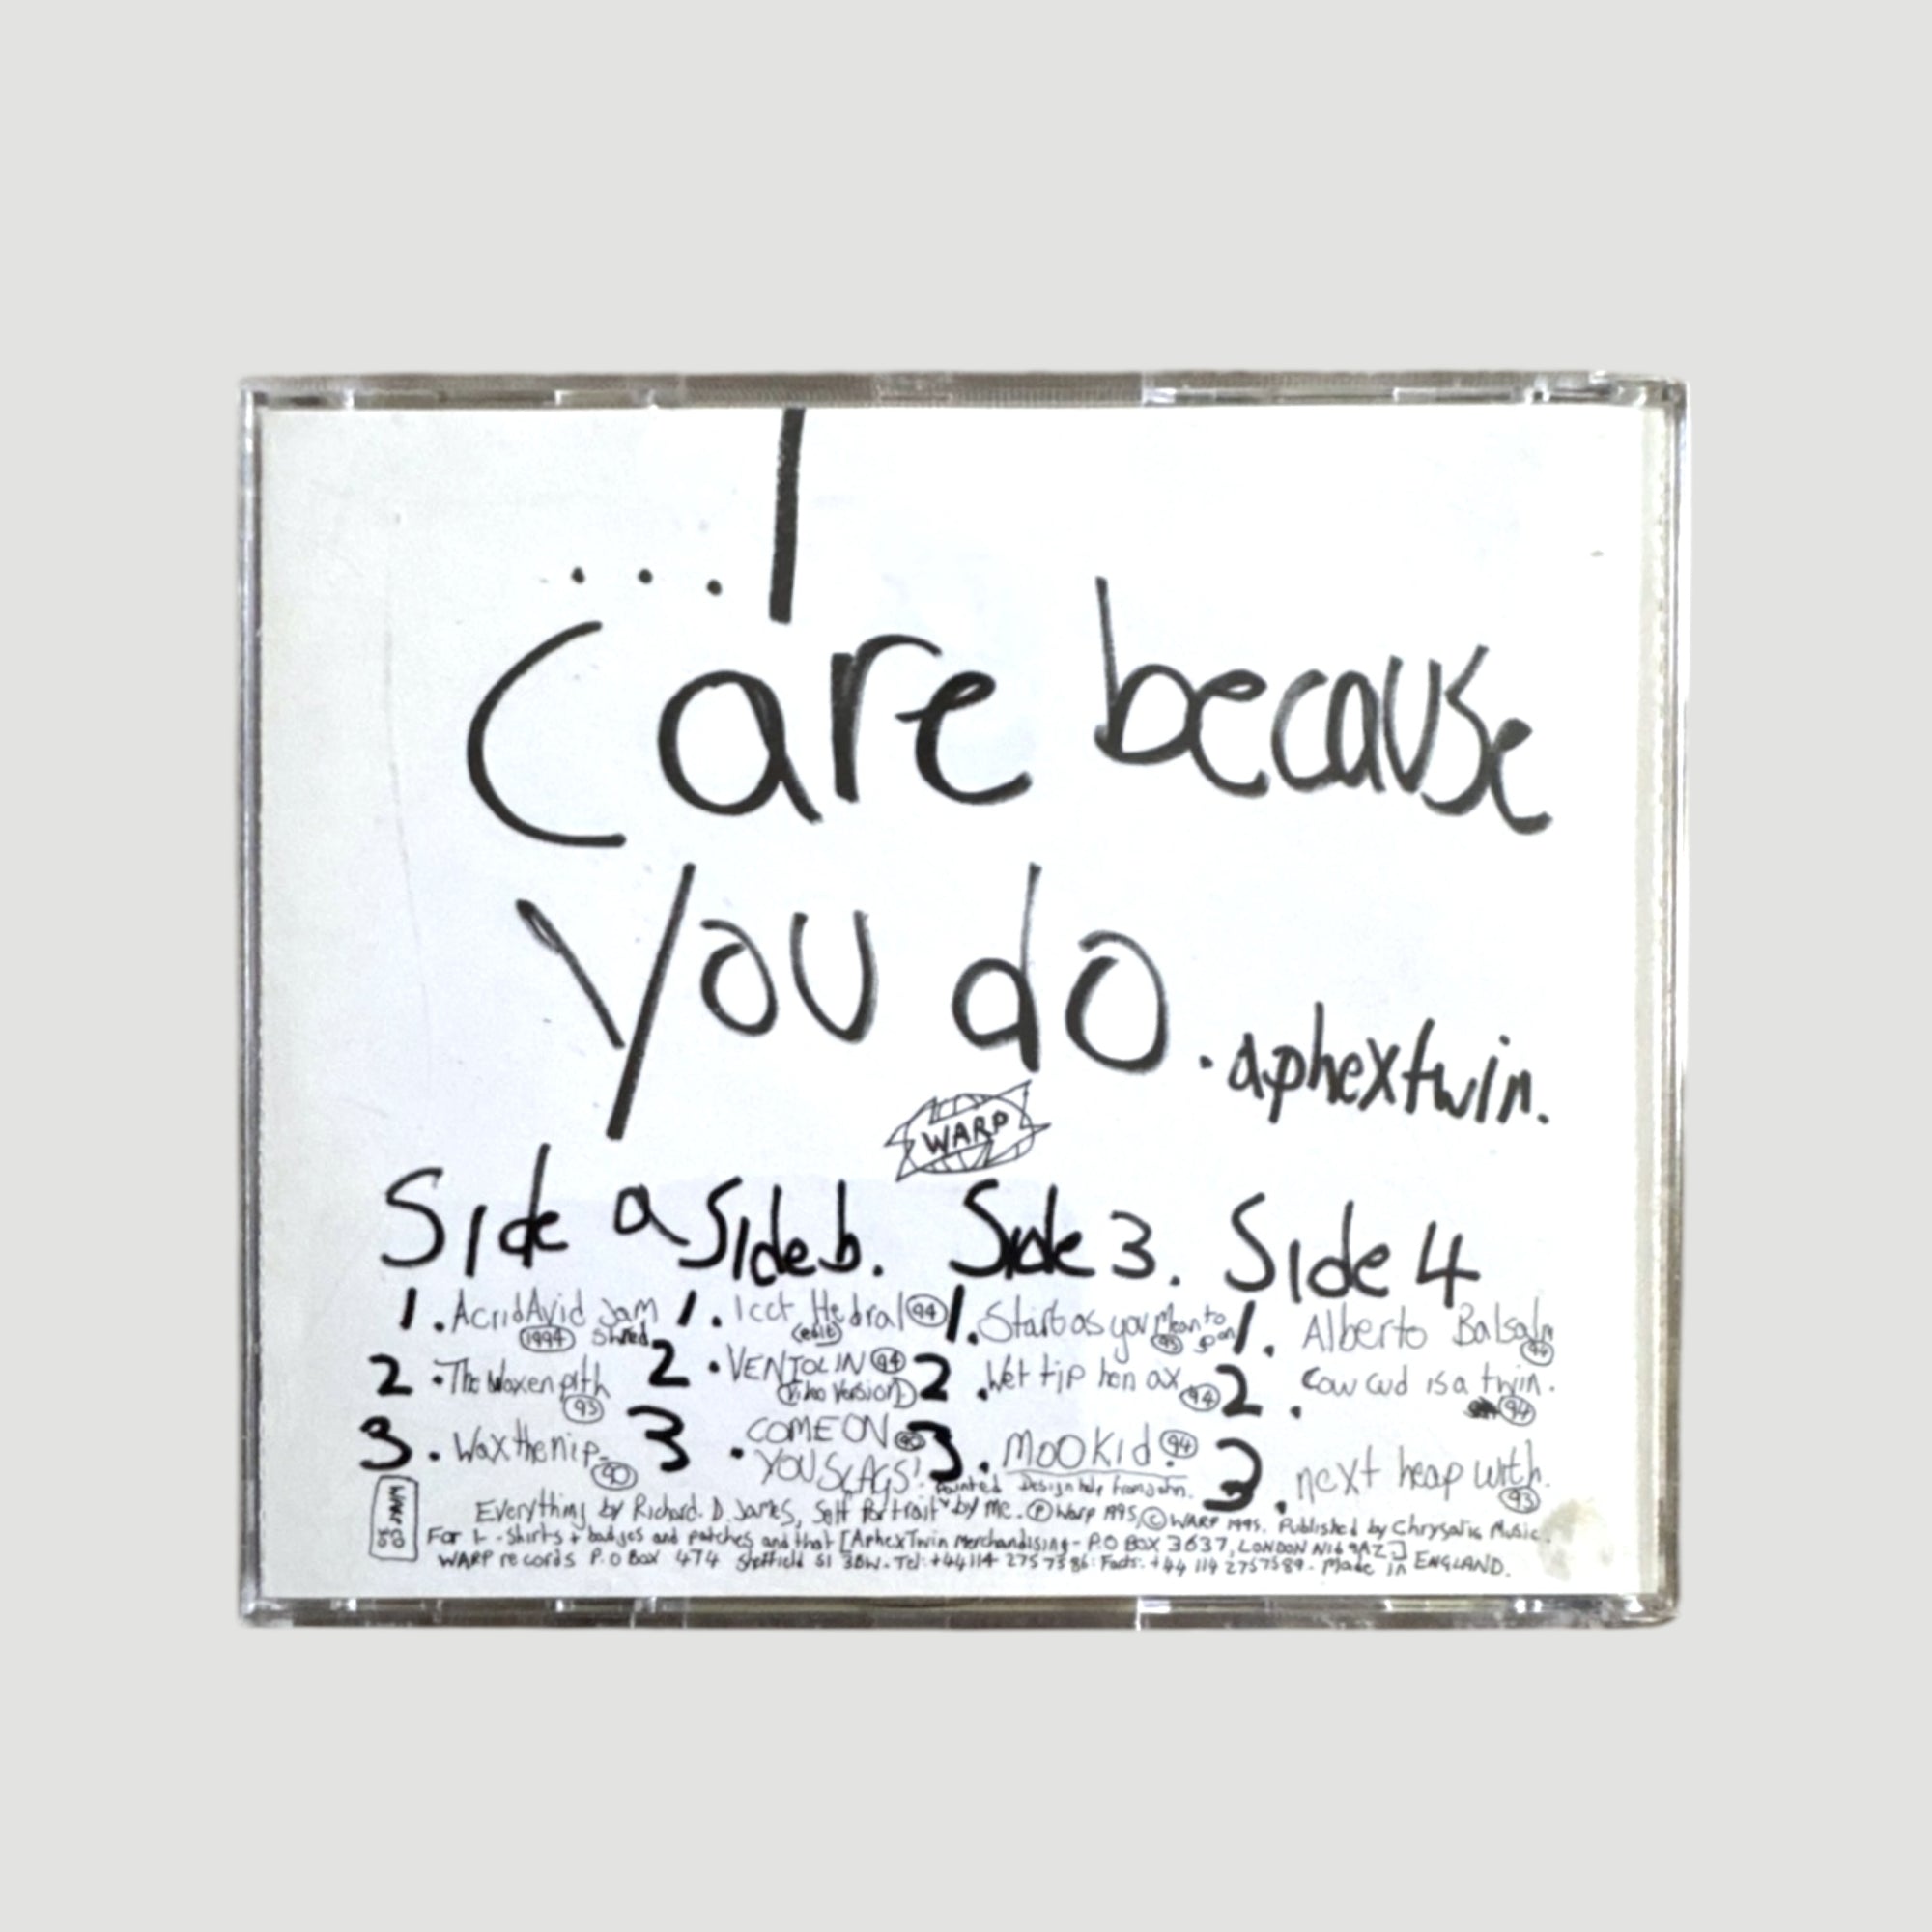 ...I
Care because
you do
.aphextwin.
WARP
Side a
1. Acrid Avid Jam
1994 Shred
2. The Waxen pith
93
3. Wax the nip.
90
Side b.
1. Icct Hedral 94
(edit)
2. VENTOLIN 94
(Video Version)
3. COME ON 90
YOU SLAGS!
Side 3.
1. Start as you Mean to
93 go on
2. Wet tip hen ax
94
3. MOOKid. 94
Side 4
1. Alberto Balsalm
94
2. Cow cud is a twin.
94
3. next heap with.
93
painted Design help from John.
Everything by Richard. D. James, Self Portrait by me. Ⓟ Warp 1995, © WARP 1995. Published by Chrysalis Music.
For t-shirts + badges and patches and that [AphexTwin Merchandising - P.O BOX 3637, LONDON N16 9AZ]
WARP records P.O Box 474 Sheffield S1 3BW. Tel: +44 114 2757586. Facts: +44 114 2757589. Made in ENGLAND.